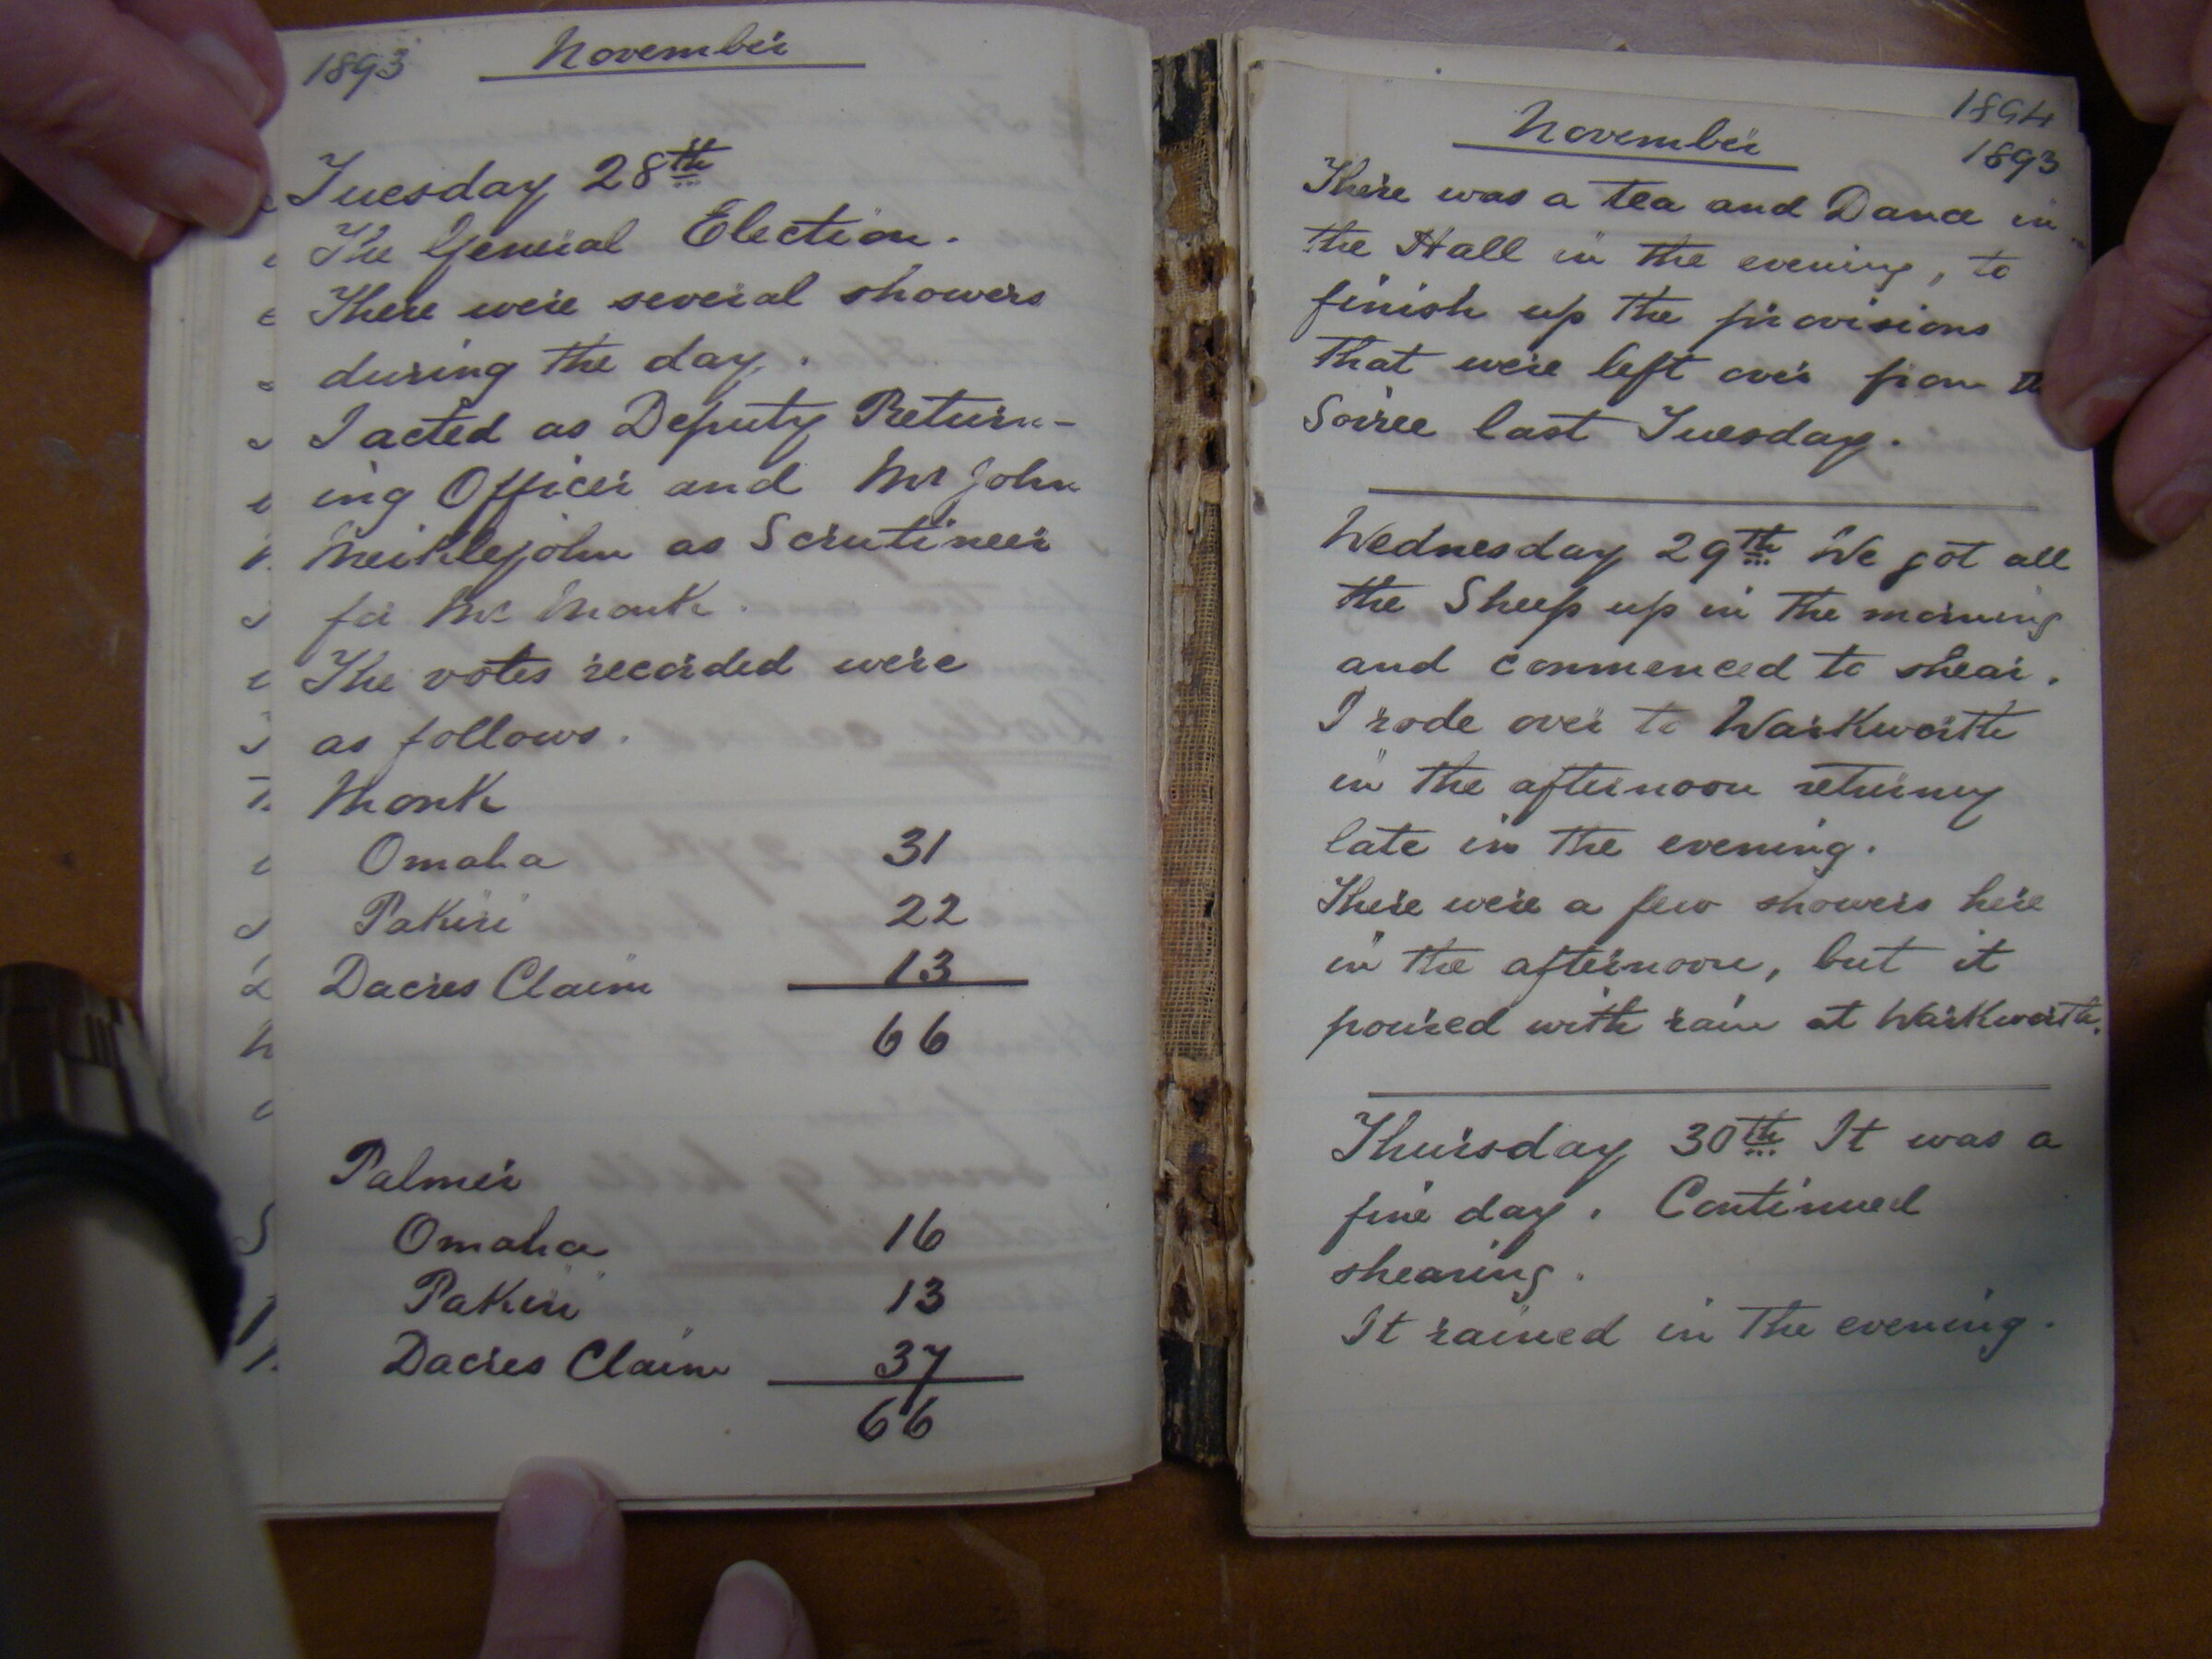 1893 November
Tuesday 28th
The General Election.
There were several showers
during the day.
I acted as Deputy Return-
ing Officer and Mr John
Meiklejohn as Scrutineer
for Mr Monk.
The votes recorded were
as follows.
Monk
Omaha 31
Pakiri 22
Dacres Claim 13
66
Palmer
Omaha 16
Pakiri 13
Dacres Claim 37
66
1894
November 1893
There was a tea and Dance in
the Hall in the evening, to
finish up the provisions
that were left over from
Soiree last Tuesday.
Wednesday 29th We got all
the Sheep up in the morning
and commenced to shear.
I rode over to Warkworth
in the afternoon returning
late in the evening.
There were a few showers here
in the afternoon, but it
poured with rain at Warkworth.
Thursday 30th It was a
fine day. Continued
shearing.
It rained in the evening.